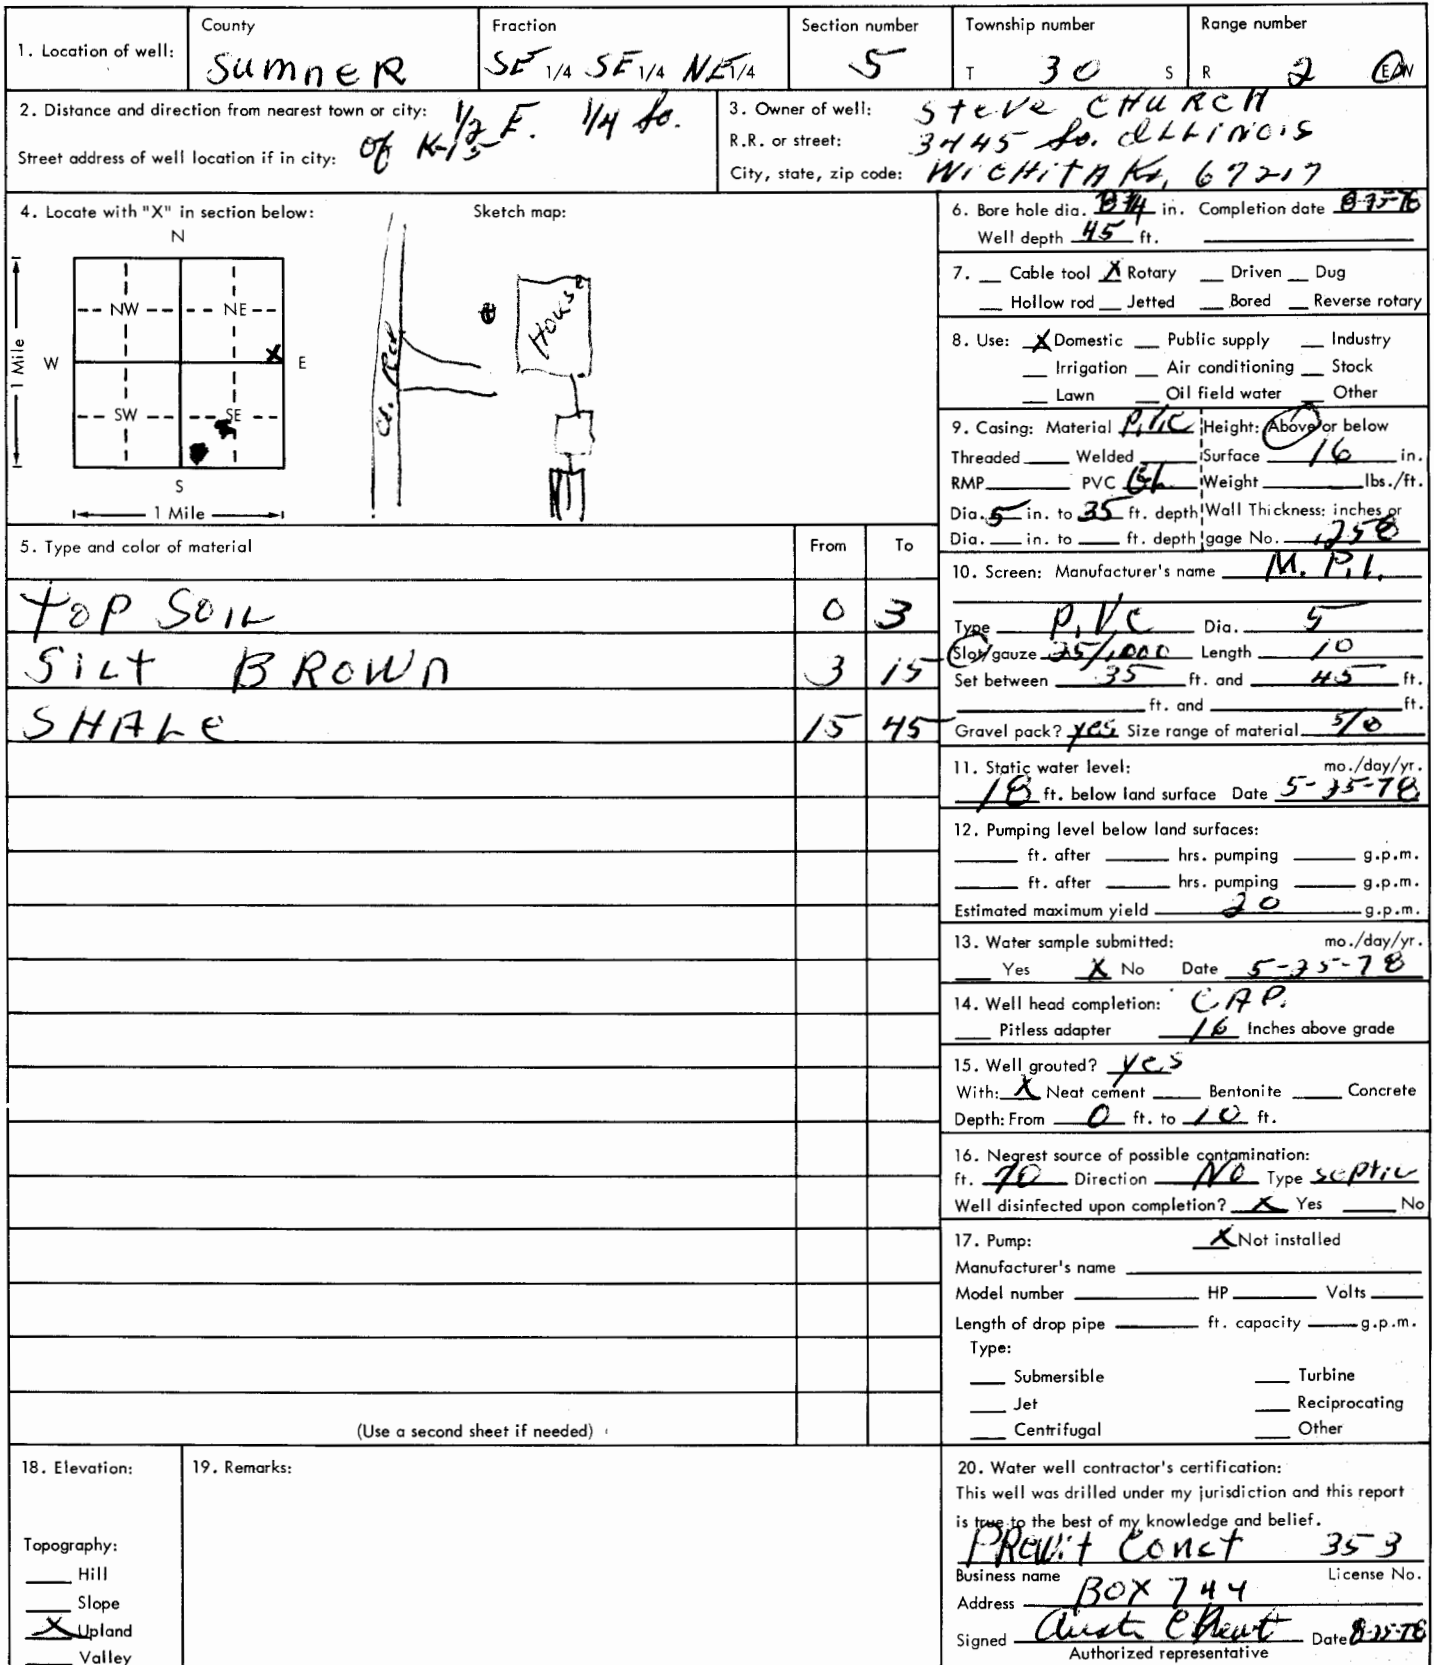 1. Location of well: County Sumner Fraction SE 1/4 SE 1/4 NE 1/4 Section number 5 Township number T 30 S Range number R 2 E/W
2. Distance and direction from nearest town or city: 1/2 E. 1/4 So.
of K-15
Street address of well location if in city:
3. Owner of well: Steve CHURCH
R.R. or street: 3445 So. ILLINOIS
City, state, zip code: WICHITA Ks, 67217
4. Locate with "X" in section below:
N
NW NE
W X E
SW SE
S
1 Mile
1 Mile
Sketch map:
House
5. Type and color of material From To
TOP SOIL 0 3
SILT BROWN 3 15
SHALE 15 45
(Use a second sheet if needed)
6. Bore hole dia. in. Completion date
Well depth 45 ft.
7. Cable tool X Rotary Driven Dug
Hollow rod Jetted Bored Reverse rotary
8. Use: X Domestic Public supply Industry
Irrigation Air conditioning Stock
Lawn Oil field water Other
9. Casing: Material P.V.C Height: Above or below
Threaded Welded Surface 16 in.
RMP PVC Weight lbs./ft.
Dia. 5 in. to 35 ft. depth Wall Thickness: inches or
Dia. in. to ft. depth gage No. .258
10. Screen: Manufacturer's name M. P. I.
Type P.V.C Dia. 5
Slot/gauze /1000 Length 10
Set between 35 ft. and 45 ft.
ft. and ft.
Gravel pack? yes Size range of material 5/8
11. Static water level: mo./day/yr.
18 ft. below land surface Date 5-25-78
12. Pumping level below land surfaces:
ft. after hrs. pumping g.p.m.
ft. after hrs. pumping g.p.m.
Estimated maximum yield 20 g.p.m.
13. Water sample submitted: mo./day/yr.
Yes X No Date 5-25-78
14. Well head completion: CAP.
Pitless adapter 16 Inches above grade
15. Well grouted? yes
With: X Neat cement Bentonite Concrete
Depth: From 0 ft. to 10 ft.
16. Nearest source of possible contamination:
ft. 70 Direction NO Type septic
Well disinfected upon completion? X Yes No
17. Pump: X Not installed
Manufacturer's name
Model number HP Volts
Length of drop pipe ft. capacity g.p.m.
Type:
Submersible Turbine
Jet Reciprocating
Centrifugal Other
18. Elevation:
Topography:
Hill
Slope
X Upland
Valley
19. Remarks:
20. Water well contractor's certification:
This well was drilled under my jurisdiction and this report
is true to the best of my knowledge and belief.
Const 353
Business name License No.
Address BOX 744
Signed Date
Authorized representative